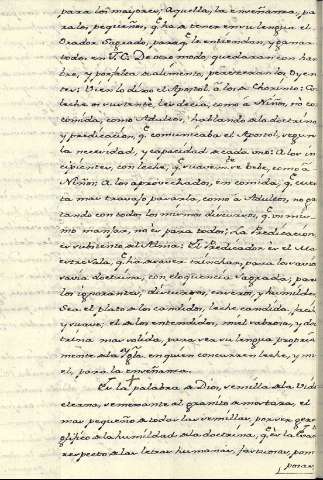 para los mayores; Aquella, la enseñanza, pa
ra los pequeños, q.e ha de tener en su lengua el
Orador Sagrado, para q.e le entiendan, y ganar
todos en J.C. De otro modo, quedaran con ham
bre, y por falta de alimento, pereceran los Oyen
tes: Vien lo dixo el Apostol, a los de Chorinto: Con
leche os sustente, les decia, como a Niños, no con
comida, como Adultos, hablando de la doctrina
y predicacion, q.e comunicaba el Apostol, segun
la necesidad, y capacidad de cada uno: A los in
cipientes, con leche, q.e suavem.te se bebe, como a
Niños; A los aprovechados, con comida, q.e cues
ta mas travajo pararla, como a Adultos, no gas
tando con todos los mismos discursos, q.e un mis
mo manjar, no es para todos; La Predicacion,
es sustento del Alma: El Predicador es el Ma
estre Sala, q.e ha de saver trinchar, para los varios
doctrina, con eloquencia Sagrada; para
los ignorantes, discursos, caseros, y humildes,
Sea el plato de los candidos, leche candida, facil
y suave; el de los entendidos, miel sabrosa, y doc
trina mas solida, para ser su lengua propria
mente de la en quien concurren leche, y mi
el, para la enseñanza.
Es la palabra de Dios, semilla de la Vida
eterna, semejante al granito de mostaza, el
mas pequeño de todas las semillas, por ser gero
glifico de la humildad de la doctrina, q.e es la
respecto de las letras humanas, fastuosas, pom
posas,